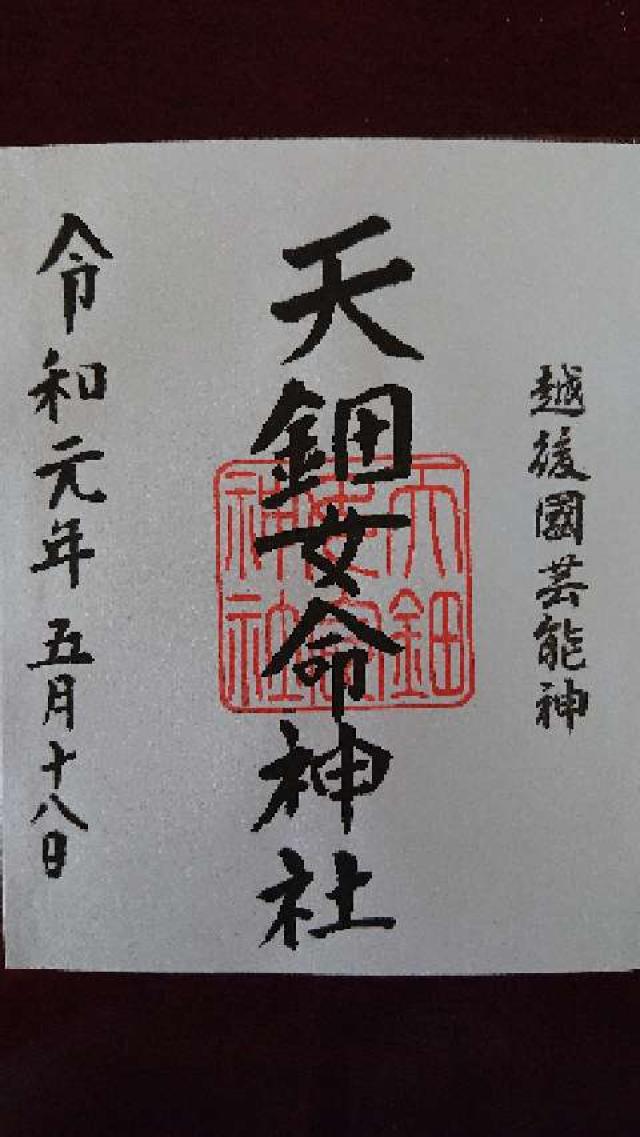 越後國芸能神
天鈿女命神社
天鈿
女命
神社
令和元年五月十八日